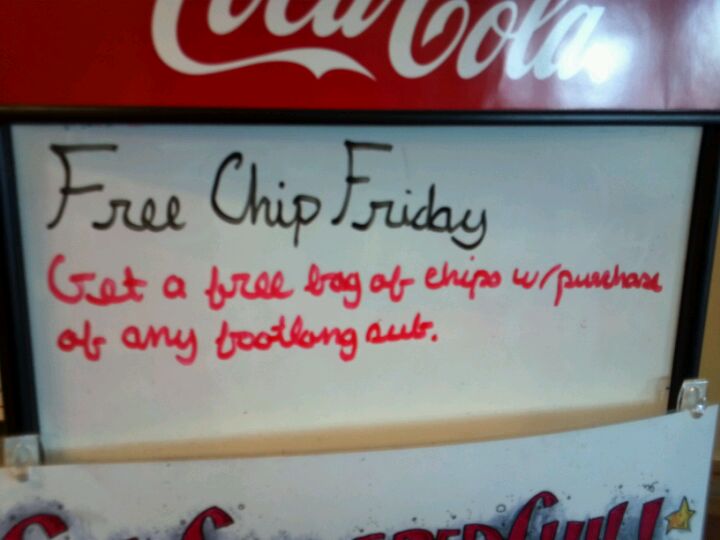 Coca-Cola
Free Chip Friday
Get a free bag of chips w/purchase
of any footlong sub.